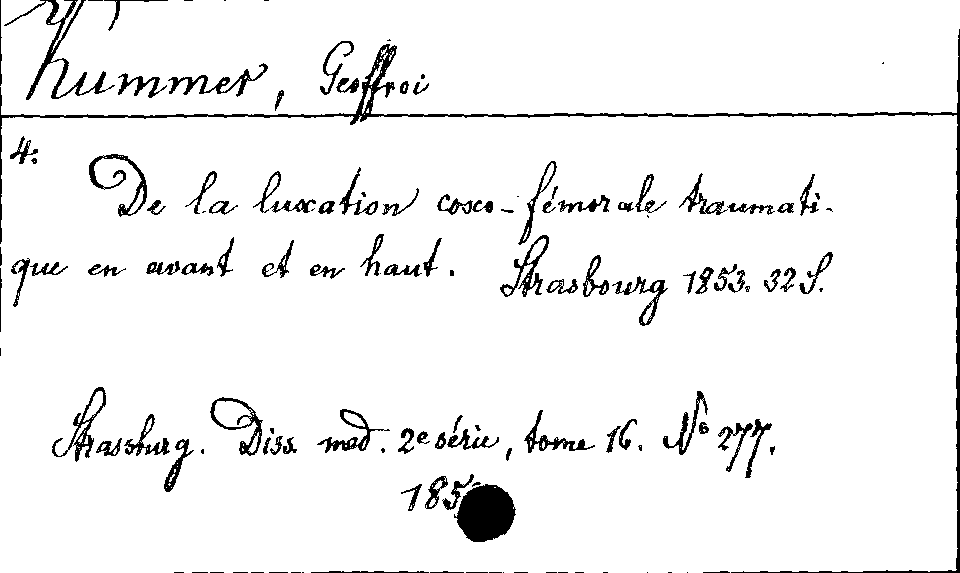 Hummer, Geoffroi
4:
De la luxation coxo-fémorale traumati-
que en avant et en haut. Strasbourg 1853. 32 S.
Strassburg. Diss. med. 2e série, tome 16. No 277.
185